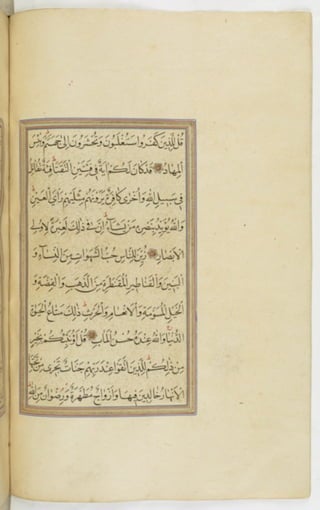 قُل لِلَّذِينَ كَفَرُوا سَتُغْلَبُونَ وَتُحْشَرُونَ إِلَى جَهَنَّمَ وَبِئْسَ
الْمِهَادُ قَدْ كَانَ لَكُمْ آيَةٌ فِي فِئَتَيْنِ الْتَقَتَا فِئَةٌ تُقَاتِلُ
فِي سَبِيلِ اللَّهِ وَأُخْرَى كَافِرَةٌ يَرَوْنَهُم مِثْلَيْهِمْ رَأْيَ الْعَيْنِ
وَاللَّهُ يُؤَيِّدُ بِنَصْرِهِ مَن يَشَاءُ إِنَّ فِي ذَلِكَ لَعِبْرَةً لِأُولِي
الْأَبْصَارِ زُيِّنَ لِلنَّاسِ حُبُّ الشَّهَوَاتِ مِنَ النِّسَاءِ وَ
الْبَنِينَ وَالْقَنَاطِيرِ الْمُقَنْطَرَةِ مِنَ الذَّهَبِ وَالْفِضَّةِ وَ
الْخَيْلِ الْمُسَوَّمَةِ وَالْأَنْعَامِ وَالْحَرْثِ ذَلِكَ مَتَاعُ الْحَيَوةِ
الدُّنْيَا وَاللَّهُ عِنْدَهُ حُسْنُ الْمَآبِ قُلْ أَؤُنَبِّئُكُم بِخَيْرٍ
مِن ذَلِكُمْ لِلَّذِينَ اتَّقَوْا عِنْدَ رَبِّهِمْ جَنَّاتٌ تَجْرِي مِن تَحْتِهَا
الْأَنْهَارُ خَالِدِينَ فِيهَا وَأَزْوَاجٌ مُطَهَّرَةٌ وَرِضْوَانٌ مِنَ اللَّهِ